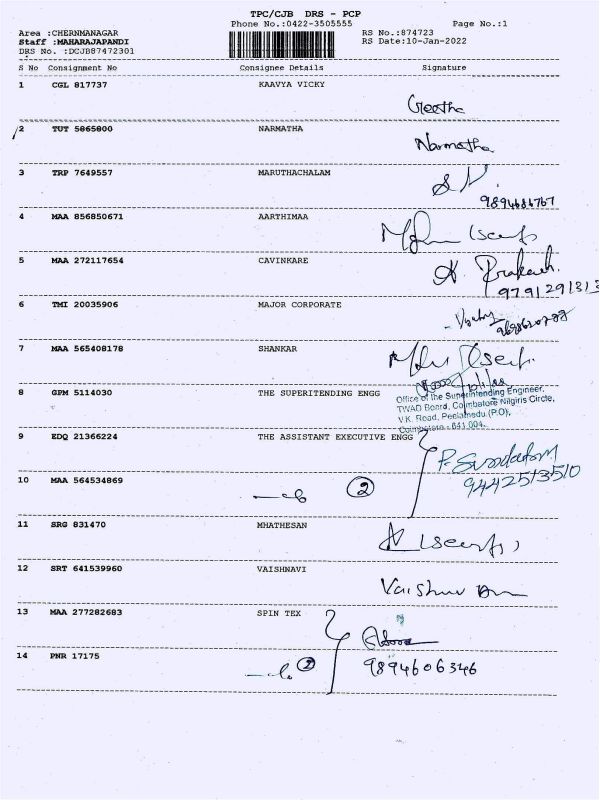 TPC/CJB DRS - PCP
Phone No.:0422-3505555
Page No.:1
Area :CHERNMANAGAR
Staff :MAHARAJAPANDI
DRS No. :DCJB87472301
RS No.:874723
RS Date:10-Jan-2022
S No Consignment No Consignee Details Signature
1 CGL 817737 KAAVYA VICKY
Geetha
2 TUT 5865800 NARMATHA
Narmatha
3 TRP 7649557 MARUTHACHALAM
4 MAA 856850671 AARTHIMAA
5 MAA 272117654 CAVINKARE
K. Prakash.
9791291313
6 TMI 20035906 MAJOR CORPORATE
7 MAA 565408178 SHANKAR
8 GPM 5114030 THE SUPERITENDING ENGG
Office of the Superintending Engineer,
TWAD Board, Coimbatore Nilgiris Circle,
V.K. Road, Peelamedu (P.O),
Coimbatore - 641 004.
9 EDQ 21366224 THE ASSISTANT EXECUTIVE ENGG
9442513510
10 MAA 564534869
2
11 SRG 831470 MHATHESAN
12 SRT 641539960 VAISHNAVI
13 MAA 277282683 SPIN TEX
14 PNR 17175
2
9894606346